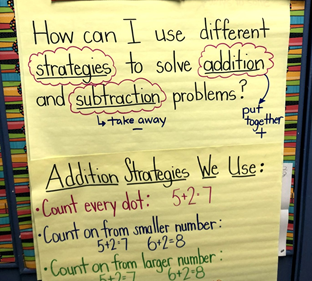 How can I use different
strategies to solve addition
and subtraction problems?
↳ take away
put
together
+
Addition Strategies We Use:
• Count every dot: 5+2=7
• Count on from smaller number:
5+2=7 6+2=8
• Count on from larger number:
5+2=7 6+2=8